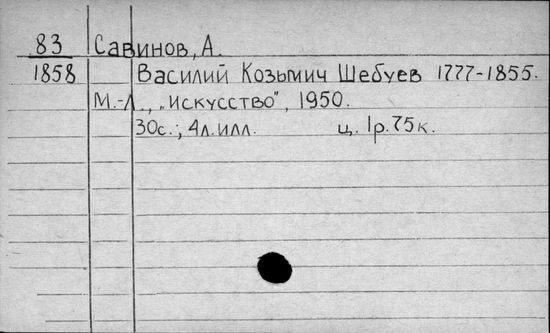 83 Савинов, А.
1858 Василий Козьмич Шебуев 1777-1855.
М.-Л., „Искусство", 1950.
30с.; 4л.илл. ц. 1р.75к.